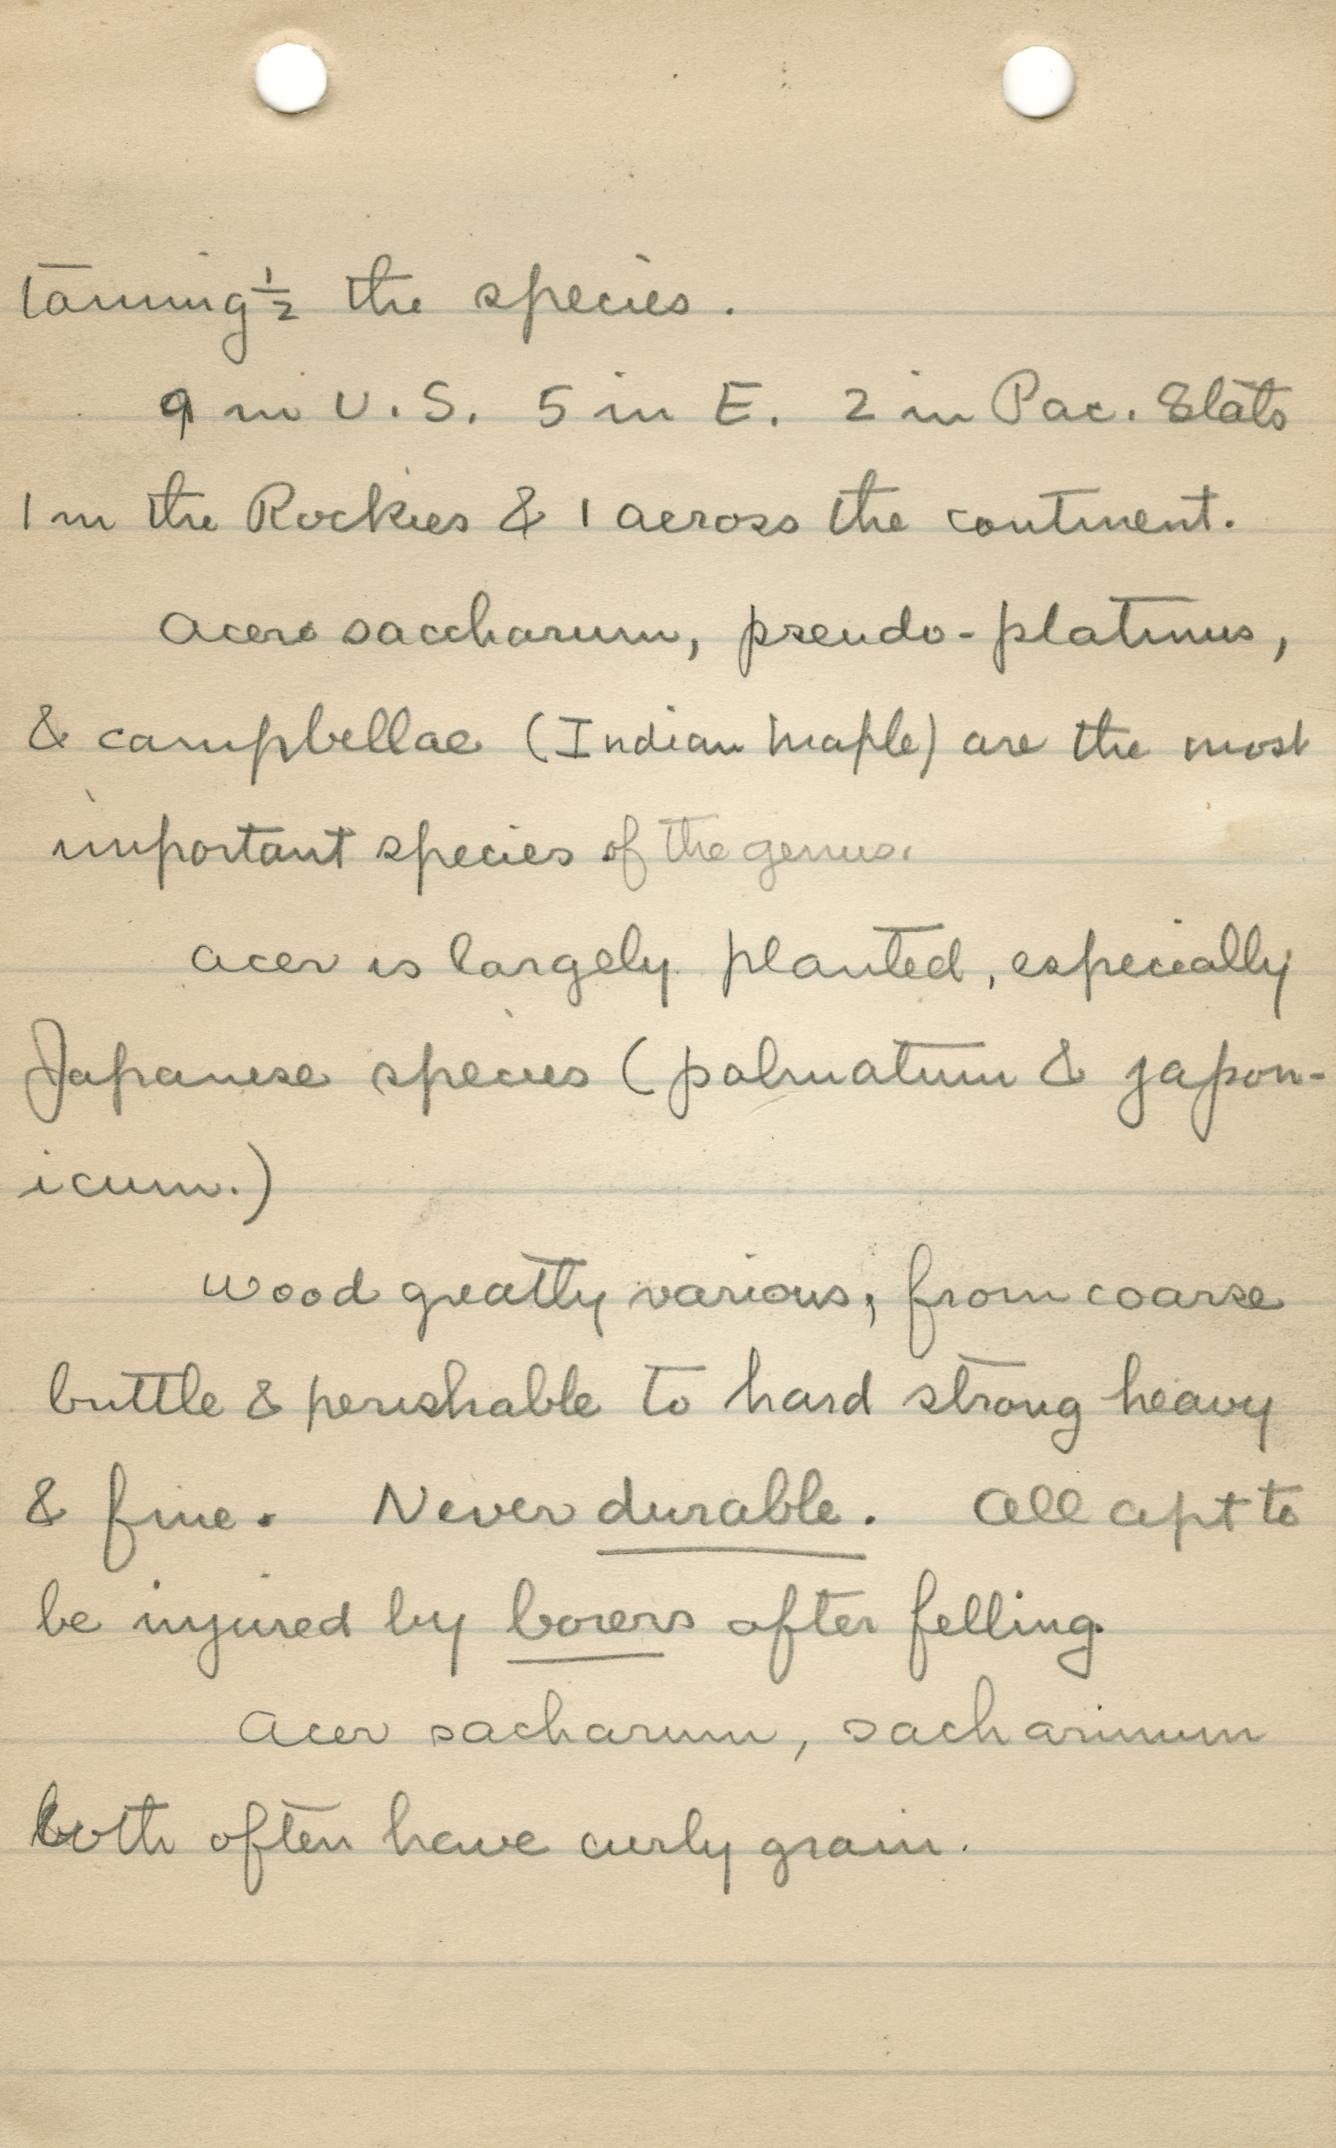 taining ½ the species.
9 in U.S. 5 in E. 2 in Pac. States
1 in the Rockies & 1 across the continent.
Acer saccharum, pseudo-platinus,
& campbellae (Indian Maple) are the most
important species of the genus.
Acer is largely planted, especially
Japanese species (palmatum & japon-
icum.)
Wood greatly various, from coarse
brittle & perishable to hard strong heavy
& fine. Never durable. All apt to
be injured by borers after felling.
Acer sacharum, sacharinum
both often have curly grain.